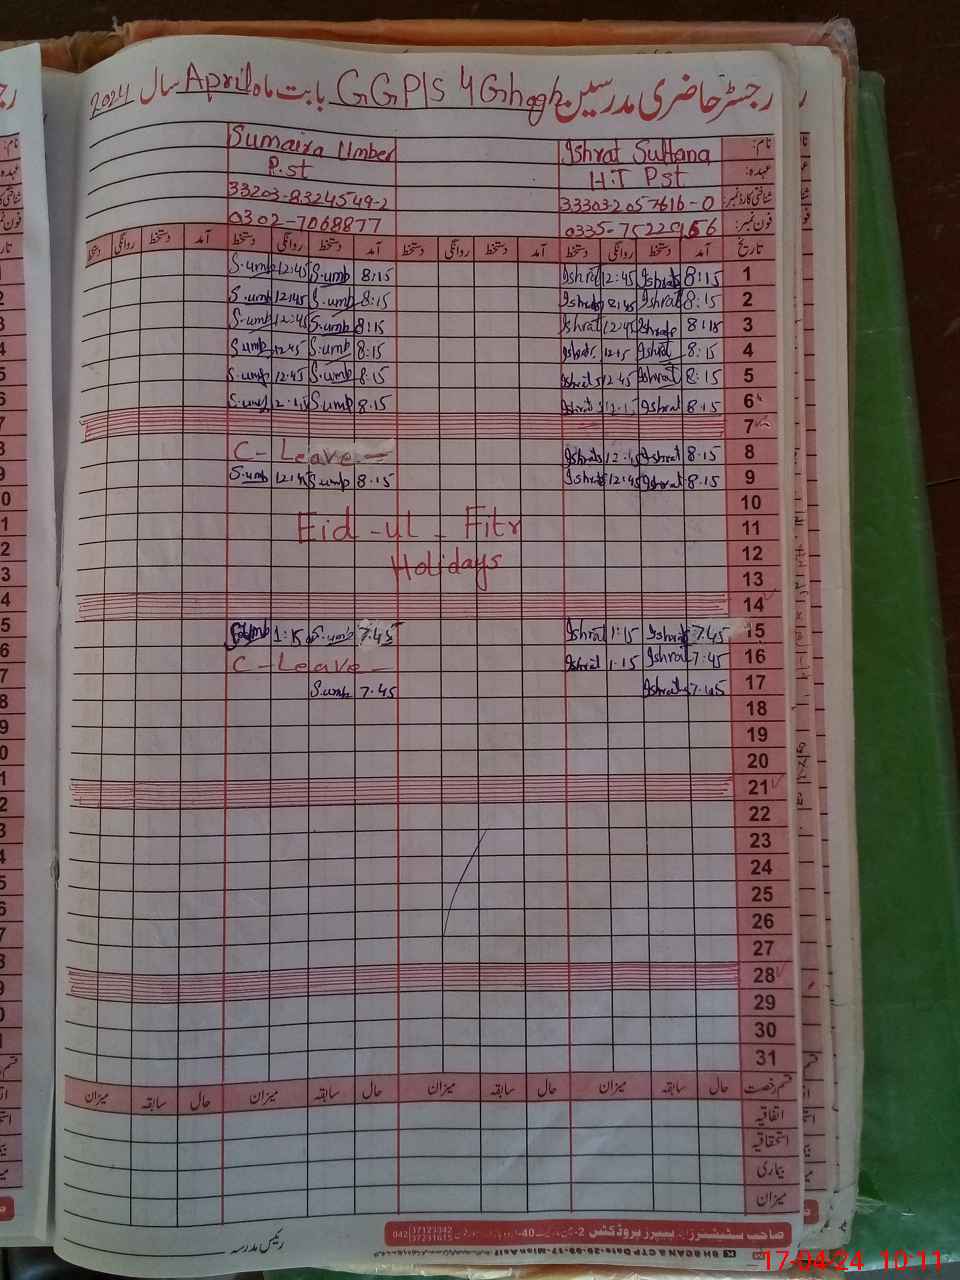 رجسٹر حاضری مدرسین GGP/S 4 Ghagh بابت ماہ April سال 2024
نام: Ishrat Sultana Sumaira Umber
عہدہ: H.T Pst P.st
شناختی کارڈ نمبر: 33303-2057616-0 33203-8324549-2
فون نمبر: 0335-7522956 0302-7068877
تاریخ آمد دستخط روانگی دستخط آمد دستخط روانگی دستخط آمد دستخط روانگی دستخط آمد دستخط روانگی دستخط
1 8:15 Ishrat 12:45 Ishrat 8:15 S.umb 12:45 S.umb
2 8:15 Ishrat 12:45 Ishrat 8:15 S.umb 12:45 S.umb
3 8:15 Ishrat 12:45 Ishrat 8:15 S.umb 12:45 S.umb
4 8:15 Ishrat 12:45 Ishrat 8:15 S.umb 12:45 S.umb
5 8:15 Ishrat 12:45 Ishrat 8:15 S.umb 12:45 S.umb
6 8:15 Ishrat 12:45 Ishrat 8:15 S.umb 12:45 S.umb
7
8 8:15 Ishrat 12:45 Ishrat C-Leave-
9 8:15 Ishrat 12:45 Ishrat 8:15 S.umb 12:45 S.umb
10
11 Eid-ul-Fitr
12 Holidays
13
14
15 7.45 Ishrat 1:15 Ishrat 7.45 S.umb 1:15 S.umb
16 7.45 Ishrat 1.15 Ishrat C-Leave-
17 7.45 Ishrat 7.45 S.umb
18
19
20
21
22
23
24
25
26
27
28
29
30
31
قسم رخصت حال سابقہ میزان حال سابقہ میزان حال سابقہ میزان حال سابقہ میزان
اتفاقیہ
استحقاقیہ
بیماری
میزان
رئیس مدرسہ
17-04-24 10:11